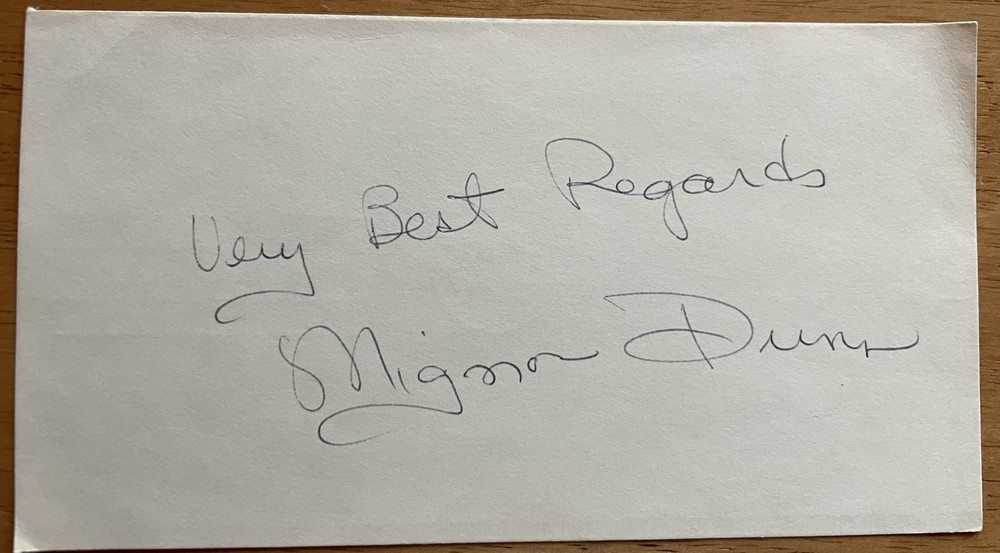 Very Best Regards
Mignon Dunn